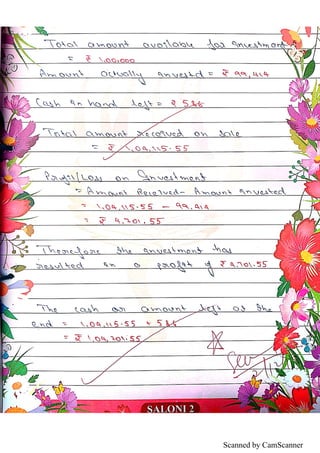 Total amount available for investment
= ₹ 1,00,000
Amount actually invested = ₹ 99,414
Cash in hand left = ₹ 586
Total amount received on sale
= ₹ 1,04,115.55
Profit/Loss on Investment
= Amount Received - Amount invested
= 1,04,115.55 - 99,414
= ₹ 4,701.55
Therefore the investment has
resulted in a profit of ₹ 4,701.55
The cash or amount left at the
end = 1,04,115.55 + 586
= ₹ 1,04,701.55
SALONI 2
Scanned by CamScanner